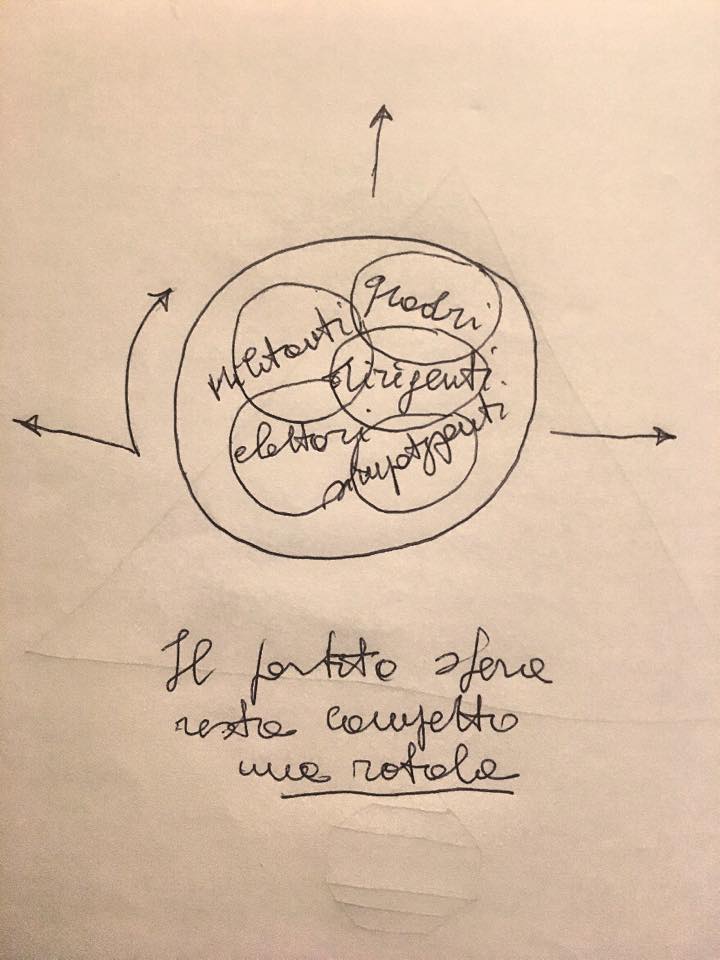 quadri
militanti
dirigenti
elettori
simpatizzanti
Il partito sfera
resta compatto
ma rotola